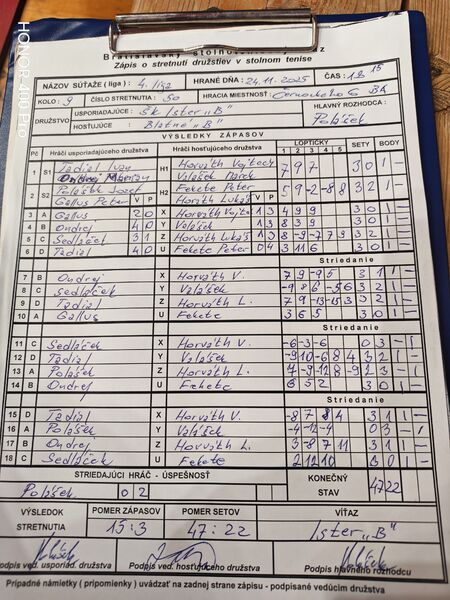 HONOR 400 Pro
Bratislavský stolnotenisový zväz
Zápis o stretnutí družstiev v stolnom tenise
NÁZOV SÚŤAŽE ( liga ) : 4. liga HRANÉ DŇA : 24.11.2025 ČAS : 18 15
KOLO : 9 ČÍSLO STRETNUTIA : 50 HRACIA MIESTNOSŤ : Černockého 6 BA
DRUŽSTVO USPORIADAJÚCE : ŠK Ister „B" HLAVNÝ ROZHODCA :
HOSŤUJÚCE : Blatné „B" Polášek
VÝSLEDKY ZÁPASOV
Pč Hráči usporiadajúceho družstva Hráči hosťujúceho družstva LOPTIČKY 1 2 3 4 5 SETY BODY
1 S1 Tadial Ivan H1 Horváth Vojtech 7 9 7 3 0 1 -
Ondrej Valášek Marek
2 S2 Polášek Jozef H2 Fekete Peter 5 9 -2 -8 8 3 2 1 -
Gallus Peter V P Horváth Lukáš V P
3 A Gallus 2 0 X Horváth Vojte 1 3 4 9 9 3 0 1 -
4 B Ondrej 4 0 Y Valášek 1 3 8 3 9 3 0 1 -
5 C Sedláček 3 1 Z Horváth Lukáš 1 3 8 -9 -7 7 9 3 2 1 -
6 D Tadial 4 0 U Fekete Peter 0 4 3 11 6 3 0 1 -
Striedanie
7 B Ondrej X Horváth V. 7 9 -9 5 3 1 1 -
8 C Sedláček Y Valášek -9 8 6 -5 6 3 2 1 -
9 D Tadial Z Horváth L. 7 9 -13 -15 3 3 2 1 -
10 A Gallus U Fekete 3 6 5 3 0 1 -
Striedanie
11 C Sedláček X Horváth V. -6 -3 -6 0 3 - 1
12 D Tadial Y Valášek -9 10 -6 8 4 3 2 1 -
13 A Polášek Z Horváth L. 7 -9 12 8 -9 2 3 - 1
14 B Ondrej U Fekete 6 5 2 3 0 1 -
Striedanie
15 D Tadial X Horváth V. -8 7 8 4 3 1 1 -
16 A Polášek Y Valášek -4 -12 -4 0 3 - 1
17 B Ondrej Z Horváth L. 3 -8 7 11 3 1 1 -
18 C Sedláček U Fekete 2 12 10 3 0 1 -
STRIEDAJÚCI HRÁČ - ÚSPEŠNOSŤ KONEČNÝ STAV 47 22
Polášek 0 2
VÝSLEDOK STRETNUTIA POMER ZÁPASOV POMER SETOV VÍŤAZ
15:3 47:22 Ister „B"
Podpis ved. usporiad. družstva Podpis ved. hosťujúceho družstva Podpis hlavného rozhodcu
Prípadné námietky ( pripomienky ) uvádzať na zadnej strane zápisu - podpísané vedúcim družstva